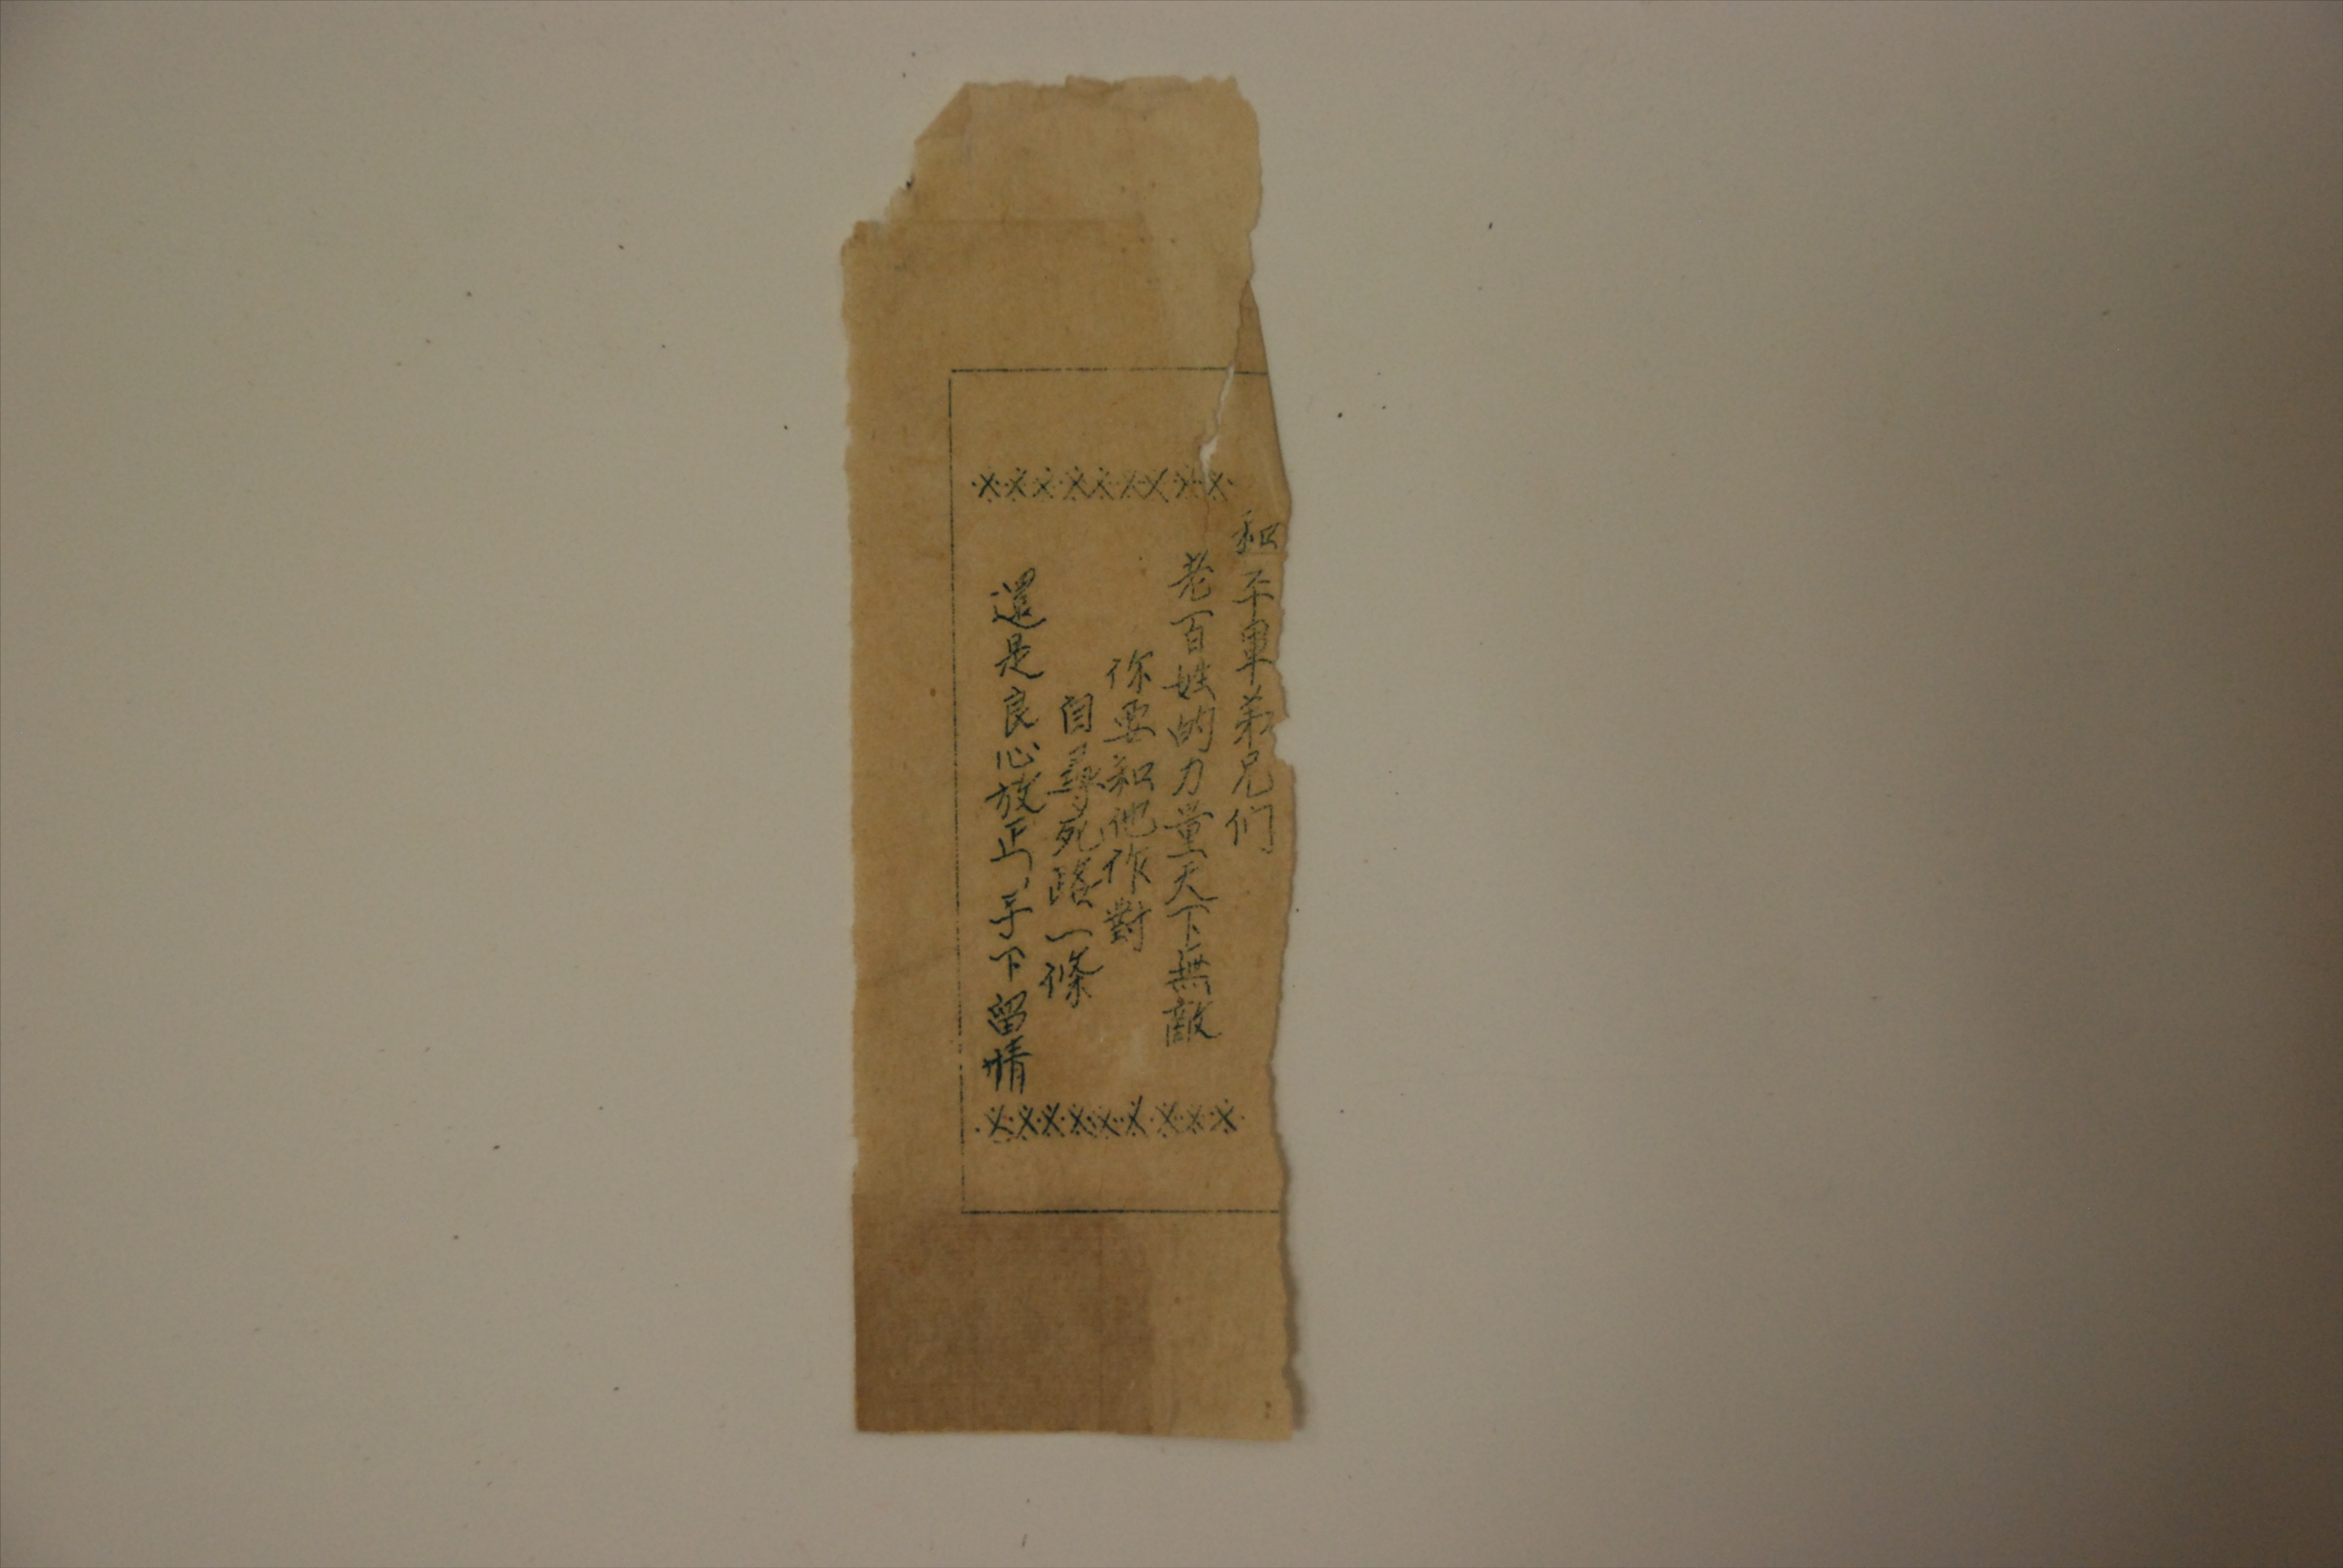 和平軍弟兄们
老百姓的力量天下無敵
你要和他作對
自尋死路一條
還是良心放正，手下留情